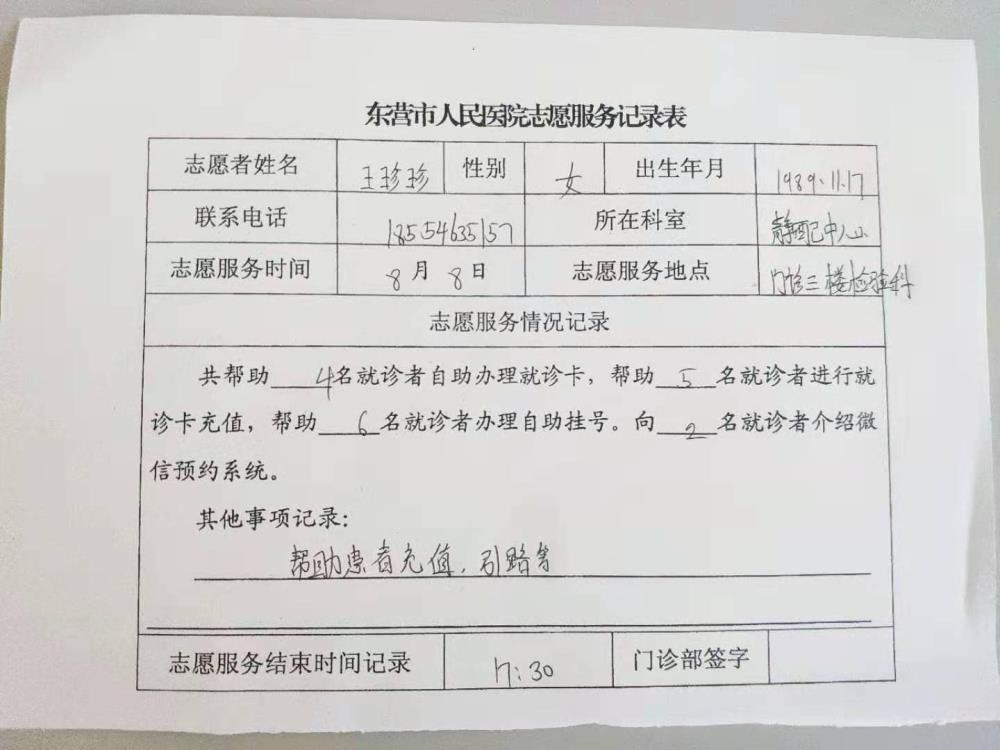 东营市人民医院志愿服务记录表
志愿者姓名 王珍珍 性别 女 出生年月 1989.11.17
联系电话 18554635157 所在科室 静配中心
志愿服务时间 8月8日 志愿服务地点 门诊三楼检验科
志愿服务情况记录
共帮助4名就诊者自助办理就诊卡，帮助5名就诊者进行就
诊卡充值，帮助6名就诊者办理自助挂号。向2名就诊者介绍微
信预约系统。
其他事项记录：
帮助患者充值，引路等
志愿服务结束时间记录 17:30 门诊部签字